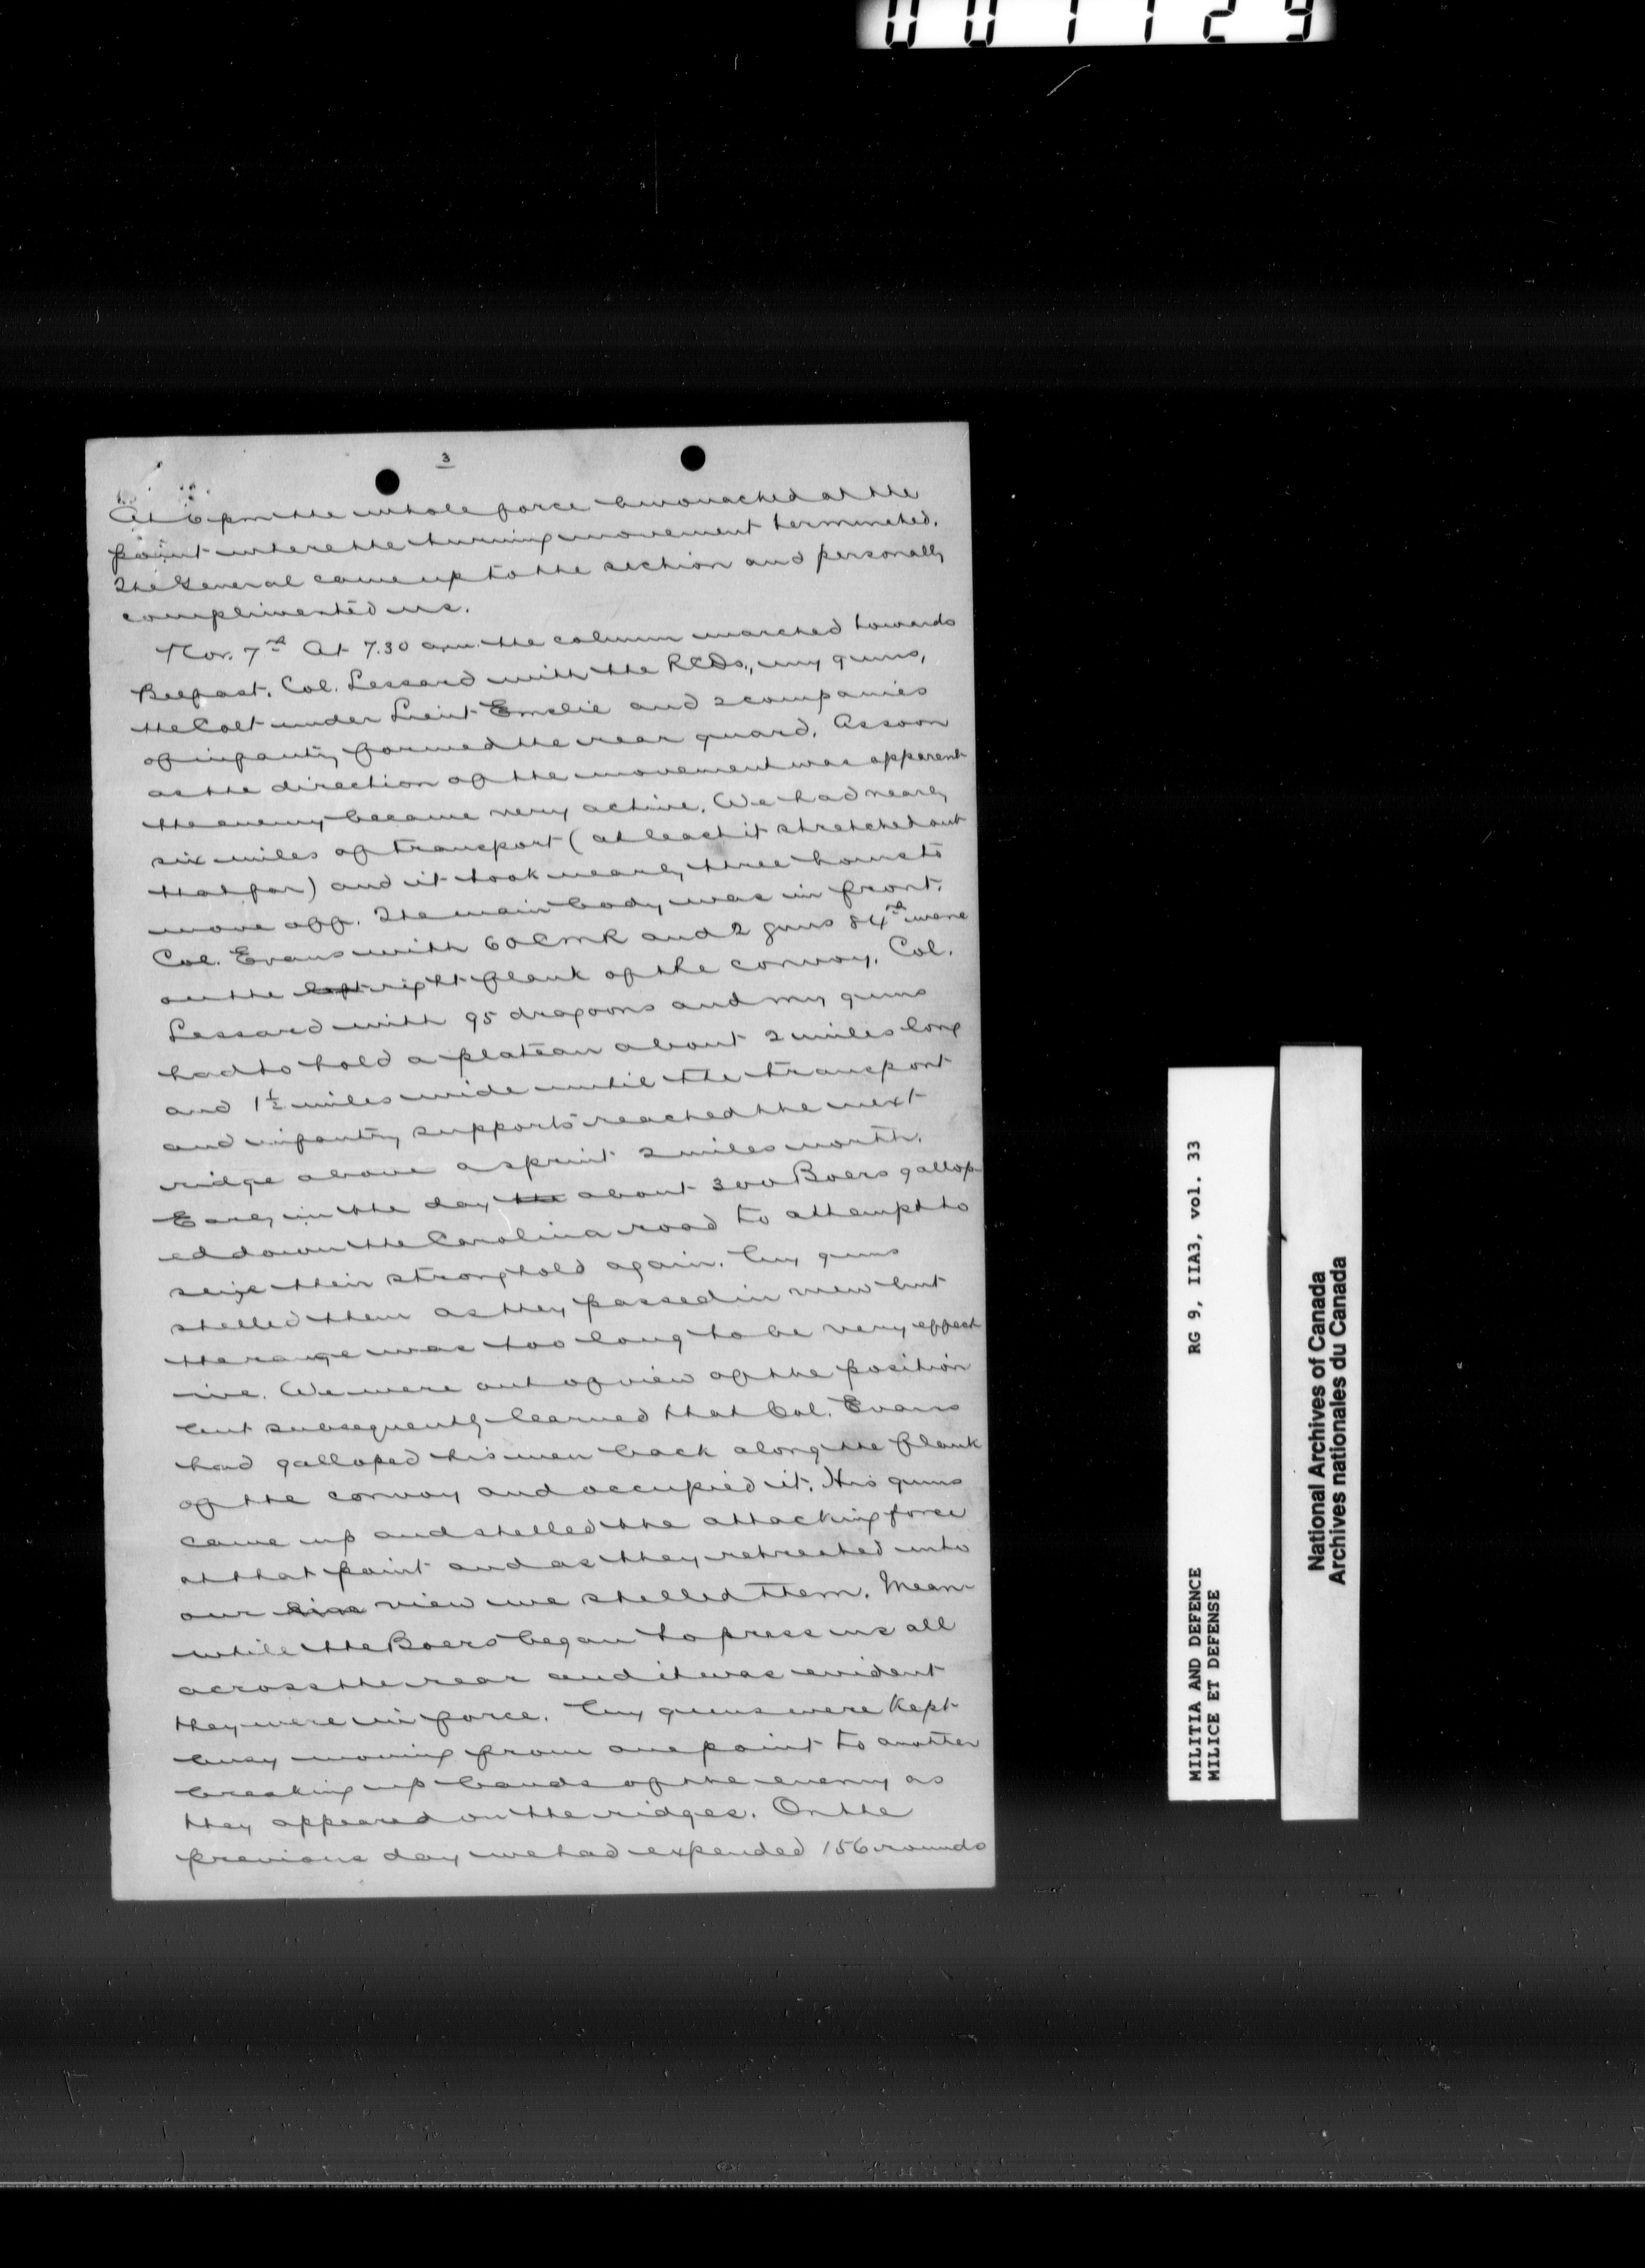 001129
3
At 6 pm the whole force bivouacked at the
point where the turning movement terminated.
The General came up to the section and personally
complimented us.
Nov. 7th At 7.30 a.m. the column marched towards
Belfast. Col. Lessard with the RCDs., my guns,
the Colt under Lieut Emslie and 2 companies
of infantry formed the rear guard. As soon
as the direction of the movement was apparent
the enemy became very active. We had nearly
six miles of transport (at least it stretched out
that far) and it took nearly three hours to
move off. The main body was in front.
Col. Evans with 60 CMR and 2 guns 84th were
on the left right flank of the convoy. Col.
Lessard with 95 dragoons and my guns
had to hold a plateau about 2 miles long
and 1½ miles wide until the transport
and infantry supports reached the next
ridge above a spruit 2 miles north.
Early in the day the about 300 Boers gallop
ed down the Carolina road to attempt to
seize their stronghold again. My guns
shelled them as they passed in view but
the range was too long to be very effect
ive. We were out of view of the position
but subsequently learned that Col. Evans
had galloped his men back along the flank
of the convoy and occupied it. His guns
came up and shelled the attacking force
at that point and as they retreated into
our view we shelled them. Mean-
while the Boers began to press us all
across the rear and it was evident
they were in force. My guns were kept
busy moving from one point to another
breaking up bands of the enemy as
they appeared on the ridges. On the
previous day we had expended 156 rounds
MILITIA AND DEFENCE RG 9, IIA3, vol. 33
MILICE ET DEFENSE
National Archives of Canada
Archives nationales du Canada